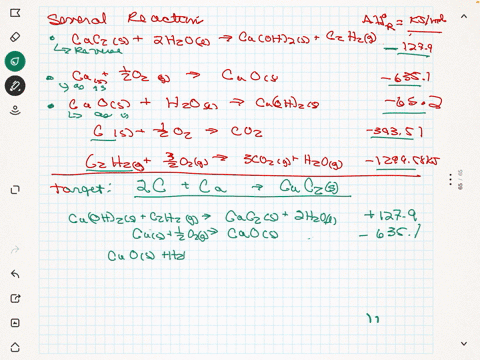 Several Reaction ΔH°R = KJ/mole
• CaC2(s) + 2H2O(l) → Ca(OH)2(s) + C2H2(g) -127.9
↳ Reverse
• Ca(s) + 1/2O2(g) → CaO(s) -635.1
↳ as is
• CaO(s) + H2O(l) → Ca(OH)2(s) -65.2
↳ as is
C(s) + 1/2O2 → CO2 -393.51
C2H2(g) + 3/2O2(g) → 3CO2(g) + H2O(g) -1299.58KJ
Target: 2C + Ca → CaC2(s)
Ca(OH)2(s) + C2H2(g) → CaC2(s) + 2H2O(l) +127.9
Ca(s) + 1/2O2(g) → CaO(s) -635.1
CaO(s) + H2